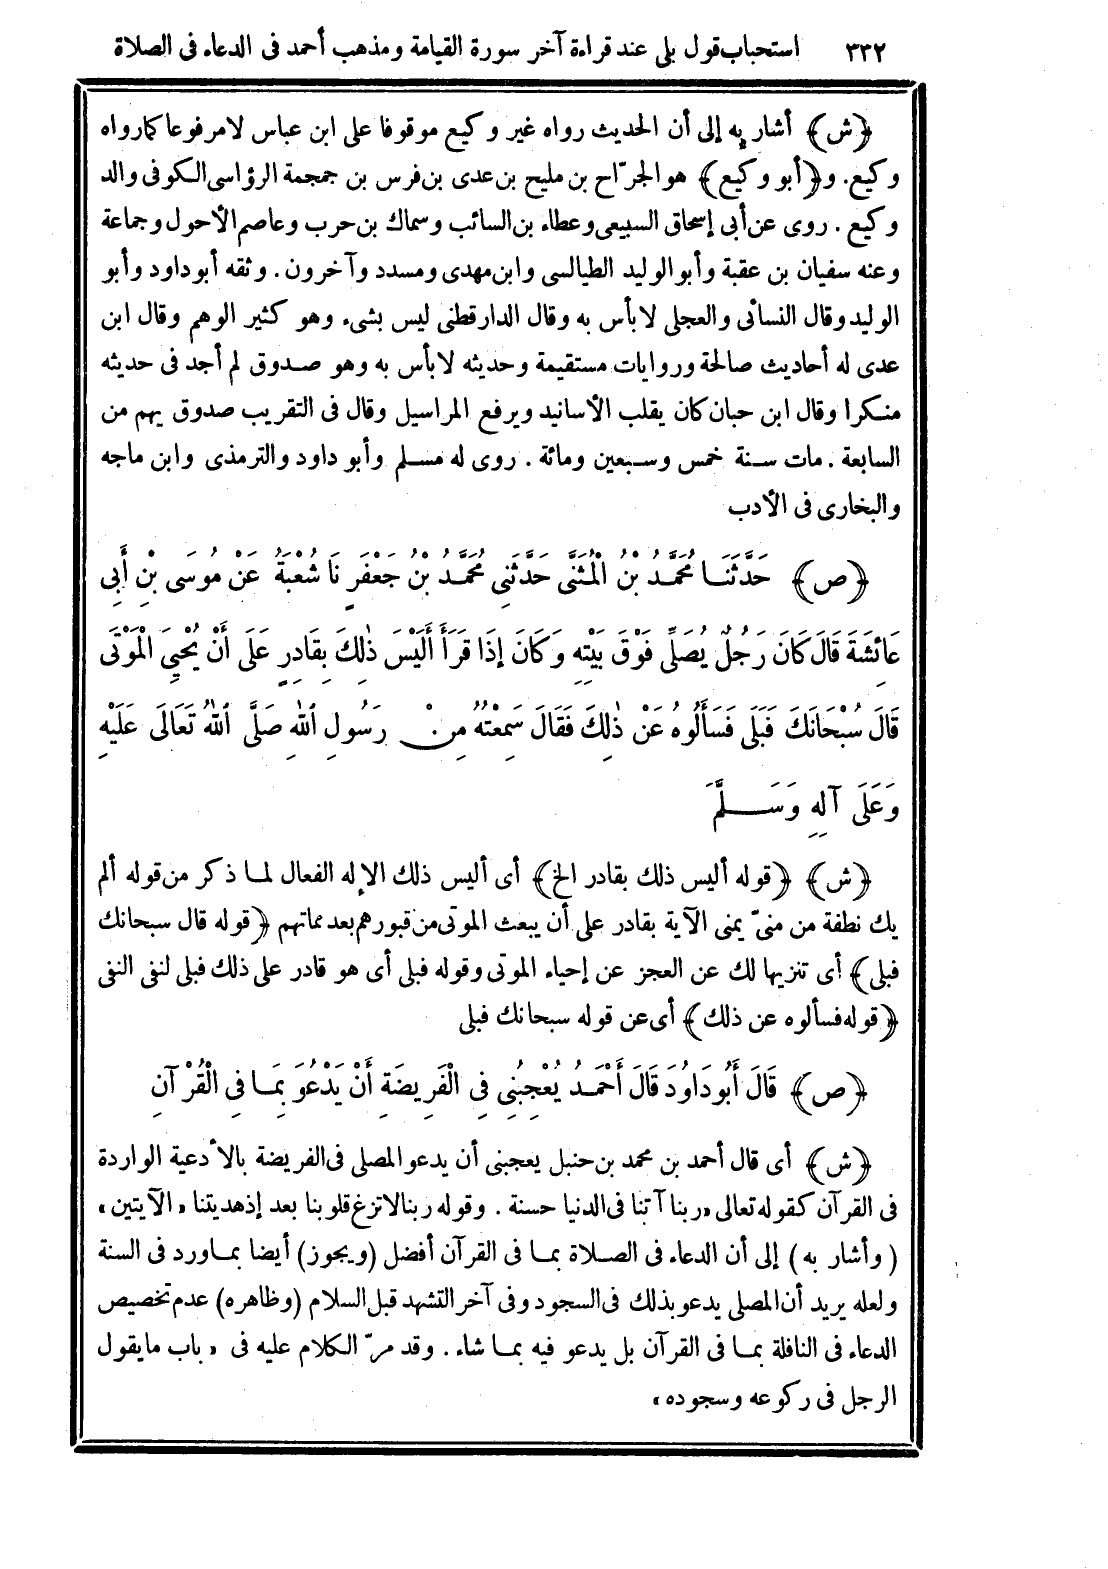 ٣٣٢ استحباب قول بلى عند قراءة آخر سورة القيامة ومذهب أحمد فى الدعاء فى الصلاة
﴿ش﴾ أشار به إلى أن الحديث رواه غير وكيع موقوفا على ابن عباس لامرفوعا كما رواه
وكيع. و﴿أبو وكيع﴾ هو الجرّاح بن مليح بن عدى بن فرس بن جمجمة الرؤاسى الكوفى والد
وكيع . روى عن أبى إسحاق السبيعى وعطاء بن السائب وسماك بن حرب وعاصم الأحول وجماعة
وعنه سفيان بن عقبة وأبو الوليد الطيالسى وابن مهدى ومسدد وآخرون. وثقه أبو داود وأبو
الوليد وقال النسائى والعجلى لا بأس به وقال الدارقطنى ليس بشىء وهو كثير الوهم وقال ابن
عدى له أحاديث صالحة وروايات مستقيمة وحديثه لا بأس به وهو صدوق لم أجد فى حديثه
منكرا وقال ابن حبان كان يقلب الأسانيد ويرفع المراسيل وقال فى التقريب صدوق يهم من
السابعة . مات سنة خمس وسبعين ومائة . روى له مسلم وأبو داود والترمذى وابن ماجه
والبخارى فى الأدب
﴿ص﴾ حَدَّثَنَا مُحَمَّدُ بْنُ الْمُثَنَّى حَدَّثَنِى مُحَمَّدُ بْنُ جَعْفَرٍ نَا شُعْبَةُ عَنْ مُوسَى بْنِ أَبِى
عَائِشَةَ قَالَ كَانَ رَجُلٌ يُصَلِّى فَوْقَ بَيْتِهِ وَكَانَ إِذَا قَرَأَ أَلَيْسَ ذٰلِكَ بِقَادِرٍ عَلَى أَنْ يُحْيِيَ الْمَوْتَى
قَالَ سُبْحَانَكَ فَبَلَى فَسَأَلُوهُ عَنْ ذٰلِكَ فَقَالَ سَمِعْتُهُ مِنْ رَسُولِ اللهِ صَلَّى اللهُ تَعَالَى عَلَيْهِ
وَعَلَى آلِهِ وَسَلَّمَ
﴿ش﴾ ﴿قوله أليس ذلك بقادر الخ﴾ أى أليس ذلك الإله الفعال لما ذكر من قوله ألم
يك نطفة من منىّ يمنى الآية بقادر على أن يبعث الموتى من قبورهم بعد مماتهم ﴿قوله قال سبحانك
فبلى﴾ أى تنزيها لك عن العجز عن إحياء الموتى وقوله فبلى أى هو قادر على ذلك فبلى لنفى النفى
﴿قوله فسألوه عن ذلك﴾ أى عن قوله سبحانك فبلى
﴿ص﴾ قَالَ أَبُو دَاوُدَ قَالَ أَحْمَدُ يُعْجِبُنِى فِى الْفَرِيضَةِ أَنْ يَدْعُوَ بِمَا فِى الْقُرْآنِ
﴿ش﴾ أى قال أحمد بن محمد بن حنبل يعجبنى أن يدعو المصلى فى الفريضة بالأدعية الواردة
فى القرآن كقوله تعالى «ربنا آتنا فى الدنيا حسنة . وقوله ربنا لا تزغ قلوبنا بعد إذ هديتنا «الآيتين»
(وأشار به) إلى أن الدعاء فى الصلاة بما فى القرآن أفضل (ويجوز) أيضا بما ورد فى السنة
ولعله يريد أن المصلى يدعو بذلك فى السجود وفى آخر التشهد قبل السلام (وظاهره) عدم تخصيص
الدعاء فى النافلة بما فى القرآن بل يدعو فيه بما شاء . وقد مرّ الكلام عليه فى «باب ما يقول
الرجل فى ركوعه وسجوده»